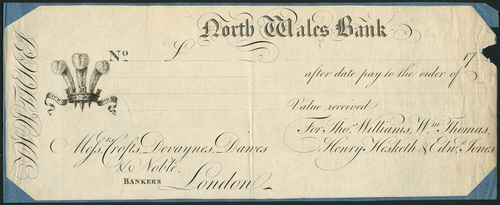 North Wales Bank
No £ 17
after date pay to the order of
Value received
For Thos. Williams, Wm. Thomas,
Henry Hesketh & Edwd. Jones
Messrs. Crofts, Devaynes, Dawes
& Noble.
Bankers London